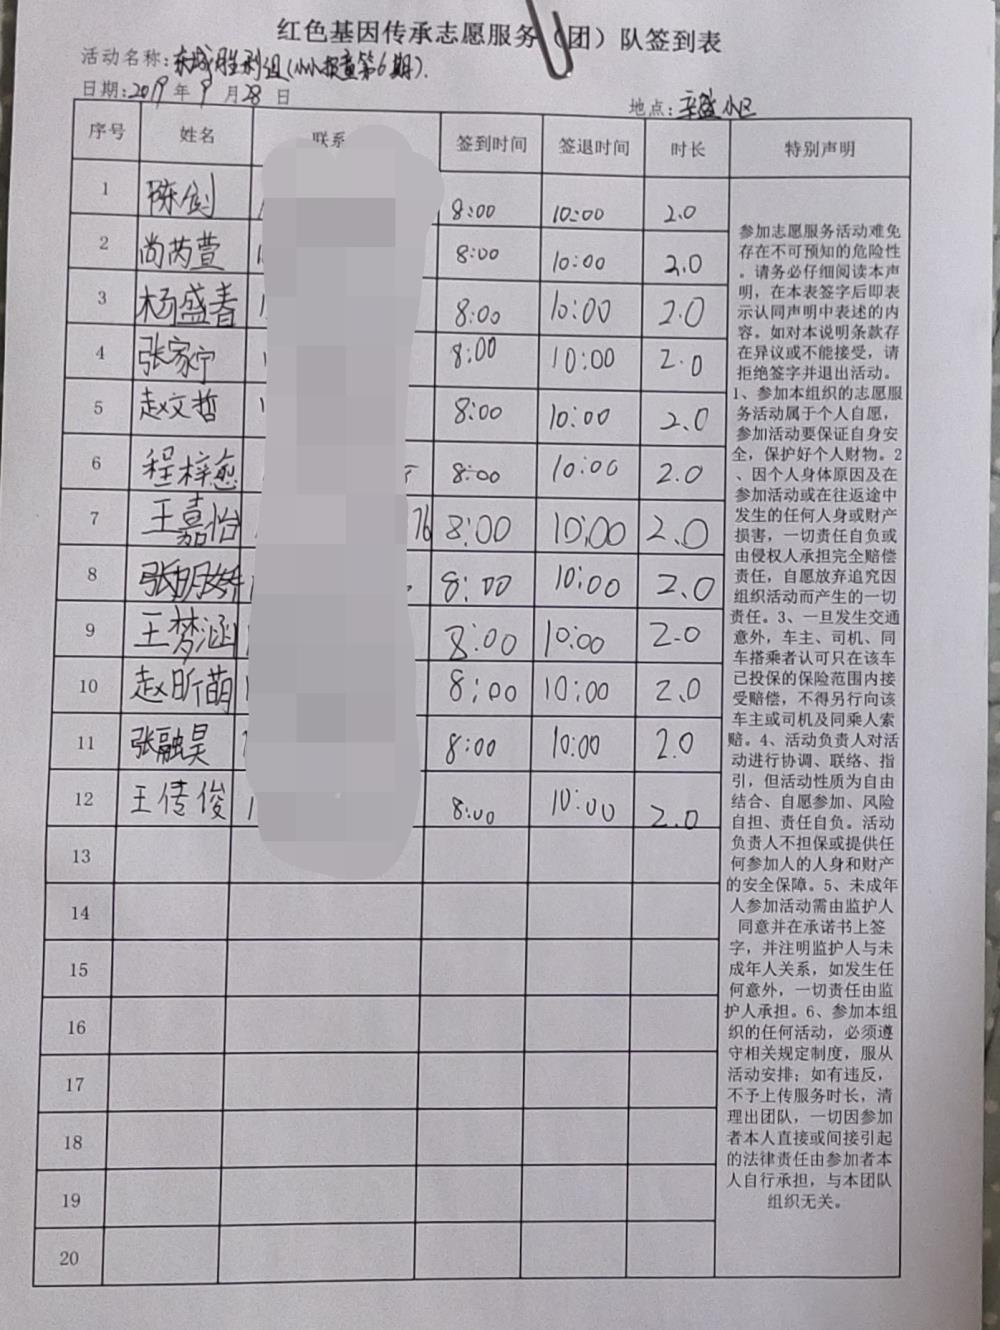 红色基因传承志愿服务（团）队签到表
活动名称:东城胜利组(小小报童第6期).
日期:2019年9月28日
地点:辛盛小区
序号 姓名 联系 签到时间 签退时间 时长 特别声明
1 陈剑 8:00 10:00 2.0
2 尚芮萱 8:00 10:00 2.0
3 杨盛春 8:00 10:00 2.0
4 张家宁 8:00 10:00 2.0
5 赵文哲 8:00 10:00 2.0
6 程梓愈 8:00 10:00 2.0
7 王嘉怡 76 8:00 10:00 2.0
8 张明妍 8:00 10:00 2.0
9 王梦涵 8:00 10:00 2.0
10 赵昕萌 8:00 10:00 2.0
11 张融昊 8:00 10:00 2.0
12 王倩俊 8:00 10:00 2.0
13
14
15
16
17
18
19
20
参加志愿服务活动难免
存在不可预知的危险性
。请务必仔细阅读本声
明，在本表签字后即表
示认同声明中表述的内
容。如对本说明条款存
在异议或不能接受，请
拒绝签字并退出活动。
1、参加本组织的志愿服
务活动属于个人自愿，
参加活动要保证自身安
全，保护好个人财物。2
、因个人身体原因及在
参加活动或在往返途中
发生的任何人身或财产
损害，一切责任自负或
由侵权人承担完全赔偿
责任，自愿放弃追究因
组织活动而产生的一切
责任。3、一旦发生交通
意外，车主、司机、同
车搭乘者认可只在该车
已投保的保险范围内接
受赔偿，不得另行向该
车主或司机及同乘人索
赔。4、活动负责人对活
动进行协调、联络、指
引，但活动性质为自由
结合、自愿参加、风险
自担、责任自负。活动
负责人不担保或提供任
何参加人的人身和财产
的安全保障。5、未成年
人参加活动需由监护人
同意并在承诺书上签
字，并注明监护人与未
成年人关系，如发生任
何意外，一切责任由监
护人承担。6、参加本组
织的任何活动，必须遵
守相关规定制度，服从
活动安排；如有违反，
不予上传服务时长，清
理出团队，一切因参加
者本人直接或间接引起
的法律责任由参加者本
人自行承担，与本团队
组织无关。